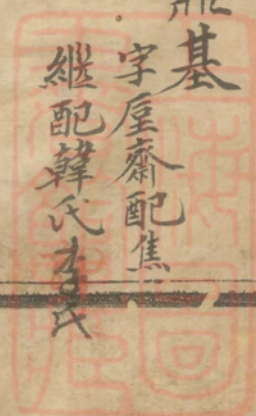 基
字㕓齋配焦
継配韓氏李氏